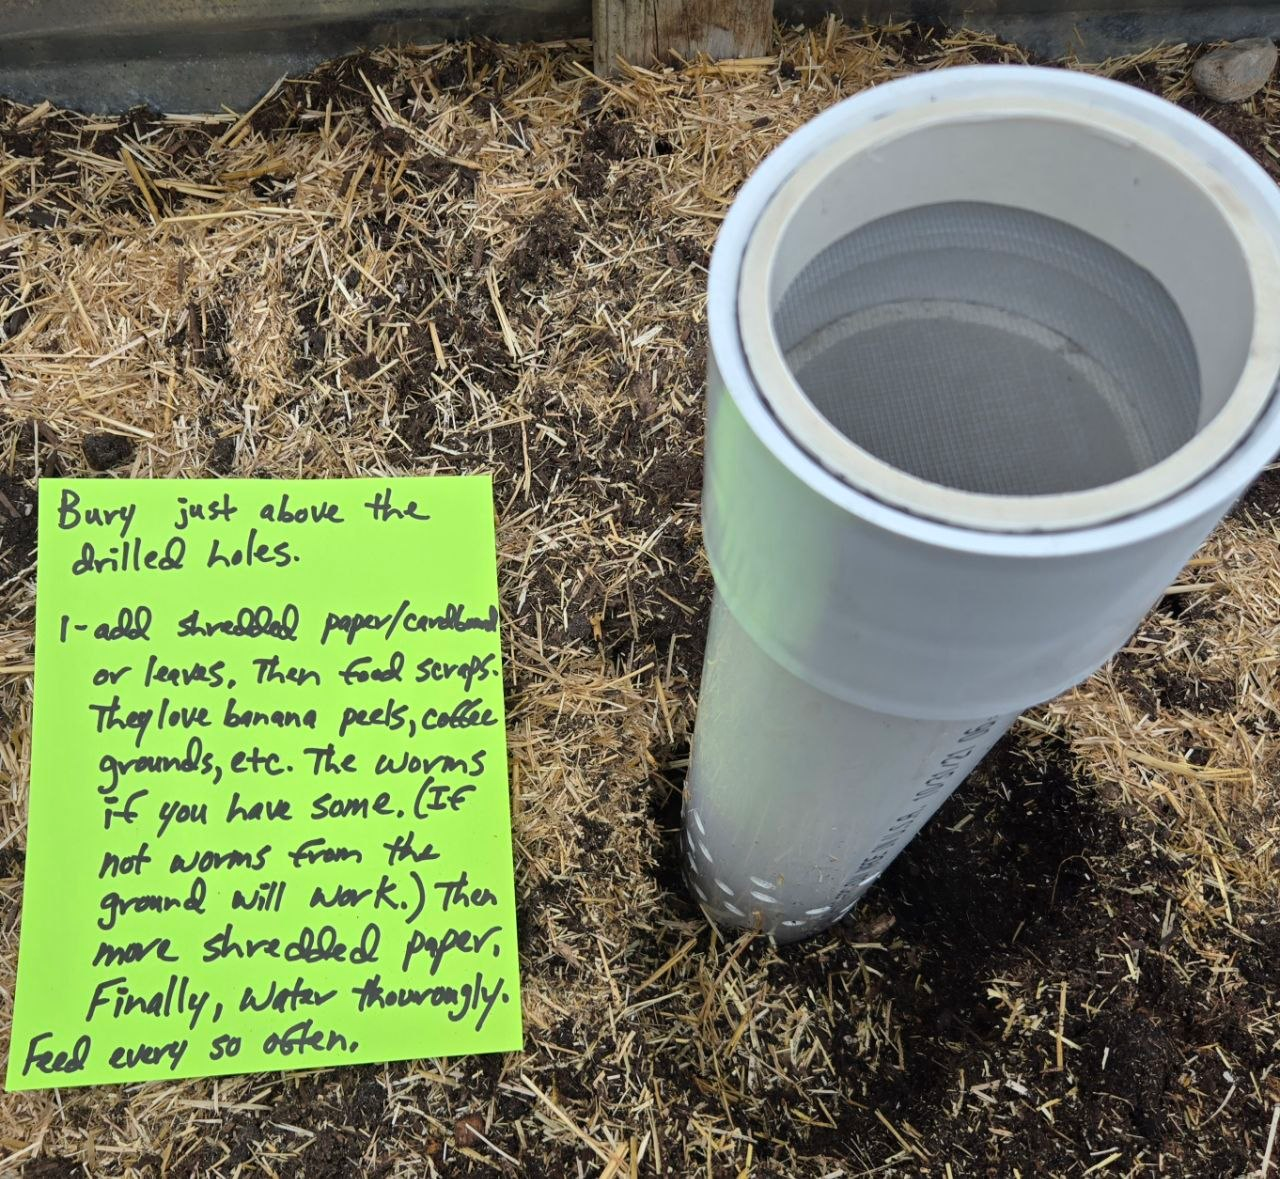 Bury just above the
drilled holes.
1-add shredded paper/cardboard
or leaves. Then food scraps.
They love banana peels, coffee
grounds, etc. The worms
if you have some. (If
not worms from the
ground will work.) Then
more shredded paper.
Finally, water thourongly.
Feed every so often.
10/21/21